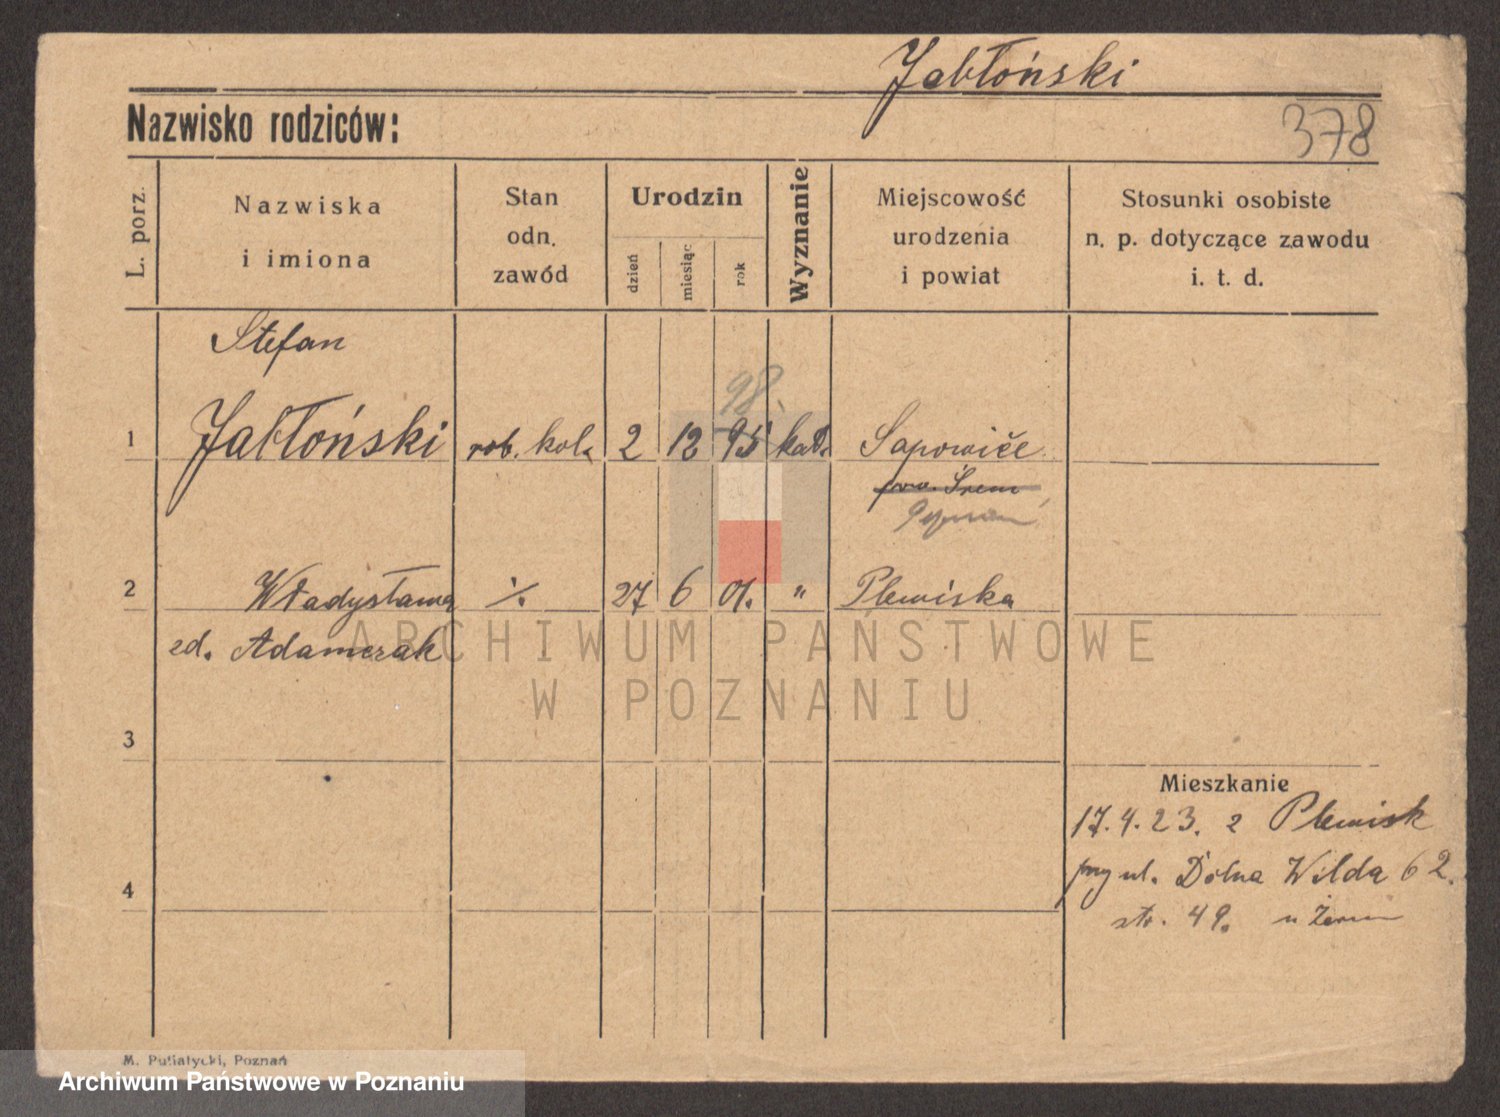 Jabłoński
Nazwisko rodziców:
378
L. porz.
Nazwiska
i imiona
Stan
odn.
zawód
Urodzin
dzień
miesiąc
rok
Wyznanie
Miejscowość
urodzenia
i powiat
Stosunki osobiste
n. p. dotyczące zawodu
i. t. d.
Stefan
98.
1 Jabłoński rob. kol. 2 12 95 kat. Sapowice
pow. Śrem
2 Władysława ·/. 27 6 01. " Plewiska
zd. Adamczak
ARCHIWUM PAŃSTWOWE
W POZNANIU
3
Mieszkanie
17.4.23. z Plewisk
przy ul. Dolna Wilda 62.
4
str. 49. u
M. Putiatycki, Poznań
Archiwum Państwowe w Poznaniu